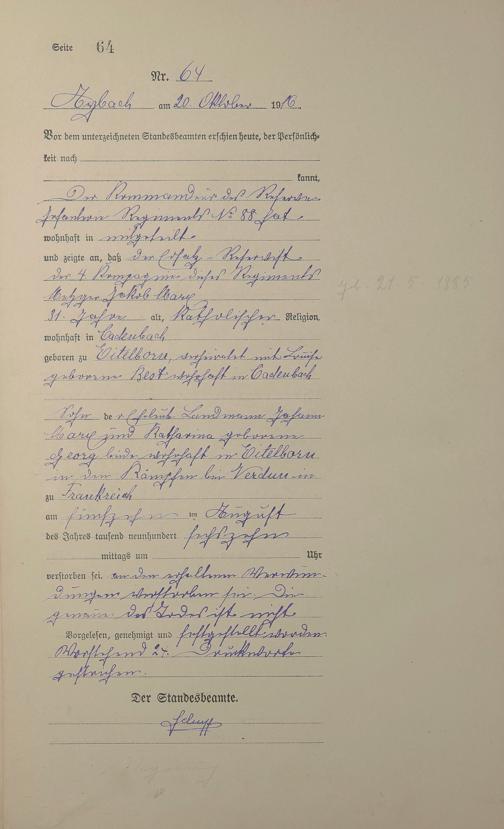 Seite 64
Nr. 64
Arzbach am 20. Oktober 1916.
Vor dem unterzeichneten Standesbeamten erschien heute, der Persönlich-
keit nach
kannt,
Der Kommandeur des Reserve-
Infanterie Regiments No 88 hat
wohnhaft in mitgeteilt
und zeigte an, daß der Ersatz-Reservist
der 4. Kompagnie dieses Regiments
Metzger Jakob Marx
31 Jahre alt, katholischer Religion,
wohnhaft in Cadenbach
geboren zu Eitelborn, verheiratet mit Louise
geborene Best wohnhaft in Cadenbach
Sohn der Eheleute Landmann Johann
Marx und Katharina geborene
Georg beide wohnhaft in Eitelborn
in den Kämpfen bei Verdun in
zu Frankreich
am fünfzehn im August
des Jahres tausend neunhundert sechszehn
mittags um Uhr
verstorben sei. an den erhaltenen Verwun-
dungen verstorben sei. Die
des Todes ist nicht
Vorgelesen, genehmigt und festgestellt worden
Vorstehend Druckworte
gestrichen.
Der Standesbeamte.
gb. 21. 5. 1885